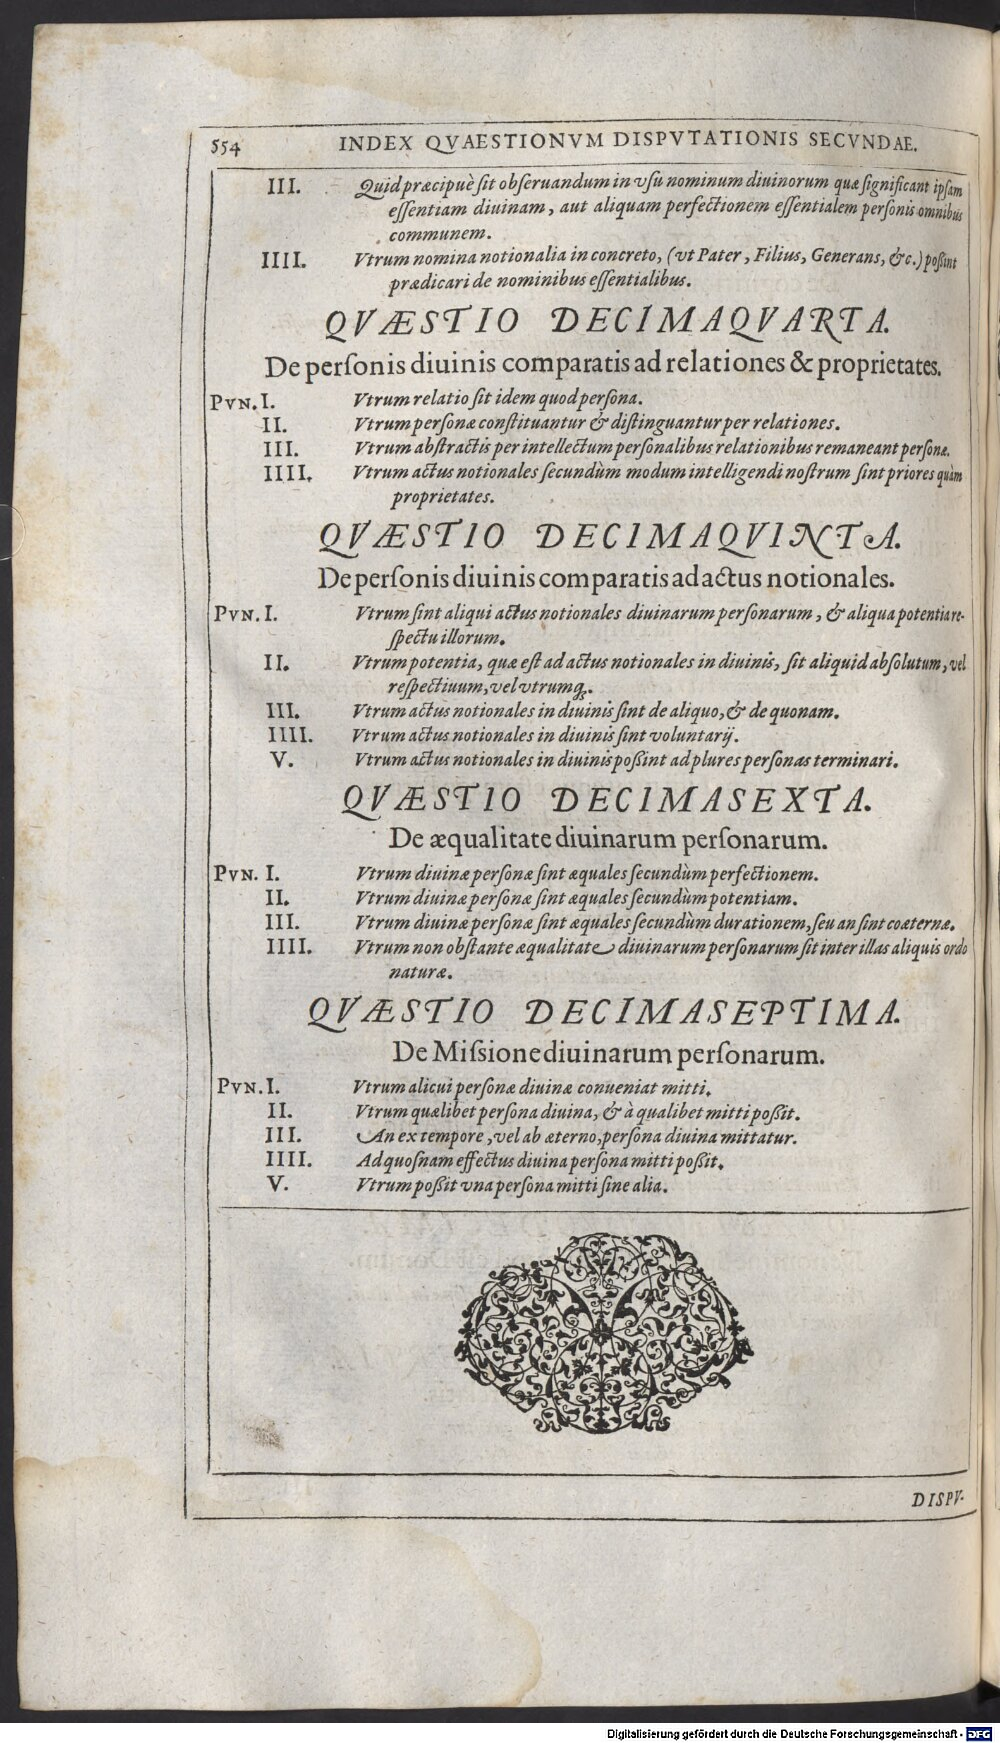 554 INDEX QVAESTIONVM DISPVTATIONIS SECVNDAE.
III. Quid præcipuè sit obseruandum in vsu nominum diuinorum quæ significant ipsam
essentiam diuinam, aut aliquam perfectionem essentialem personis omnibus
communem.
IIII. Vtrum nomina notionalia in concreto, (vt Pater, Filius, Generans, &c.) poßint
prædicari de nominibus essentialibus.
QVÆSTIO DECIMAQVARTA.
De personis diuinis comparatis ad relationes & proprietates.
PVN. I. Vtrum relatio sit idem quod persona.
II. Vtrum personæ constituantur & distinguantur per relationes.
III. Vtrum abstractis per intellectum personalibus relationibus remaneant personæ.
IIII. Vtrum actus notionales secundùm modum intelligendi nostrum sint priores quàm
proprietates.
QVÆSTIO DECIMAQVINTA.
De personis diuinis comparatis ad actus notionales.
PVN. I. Vtrum sint aliqui actus notionales diuinarum personarum, & aliqua potentia re-
spectu illorum.
II. Vtrum potentia, quæ est ad actus notionales in diuinis, sit aliquid absolutum, vel
respectiuum, vel vtrumq;.
III. Vtrum actus notionales in diuinis sint de aliquo, & de quonam.
IIII. Vtrum actus notionales in diuinis sint voluntarij.
V. Vtrum actus notionales in diuinis poßint ad plures personas terminari.
QVÆSTIO DECIMASEXTA.
De æqualitate diuinarum personarum.
PVN. I. Vtrum diuinæ personæ sint æquales secundùm perfectionem.
II. Vtrum diuinæ personæ sint æquales secundùm potentiam.
III. Vtrum diuinæ personæ sint æquales secundùm durationem, seu an sint coæternæ.
IIII. Vtrum non obstante æqualitate diuinarum personarum sit inter illas aliquis ordo
naturæ.
QVÆSTIO DECIMASEPTIMA.
De Missione diuinarum personarum.
PVN. I. Vtrum alicui personæ diuinæ conueniat mitti.
II. Vtrum quælibet persona diuina, & à qualibet mitti poßit.
III. An ex tempore, vel ab æterno, persona diuina mittatur.
IIII. Ad quosnam effectus diuina persona mitti poßit.
V. Vtrum poßit vna persona mitti sine alia.
DISPV-
Digitalisierung gefördert durch die Deutsche Forschungsgemeinschaft - DFG